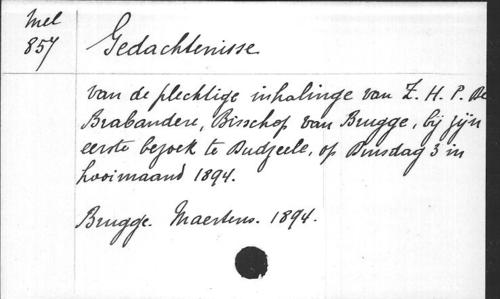 Mel
857
Gedachtenisse
van de plechtige inhalinge van Z. H. P. De
Brabandere, Bisschop van Brugge, bij zijn
eerste bezoek te Dudzeele, op Dinsdag 3 in
hooimaand 1894.
Brugge. Maertens. 1894.